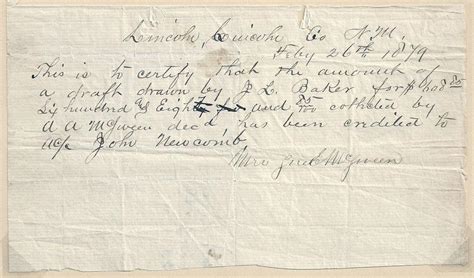 Lincoln, Lincoln Co N.M.
Feby 26th 1879
This is to certify that the amount of
a draft drawn by J L. Baker for $608 85
Six hundred & Eight and 85/100 collected by
A A McSween decd, has been credited to
a/c John Newcomb,
Mrs Sue E McSween